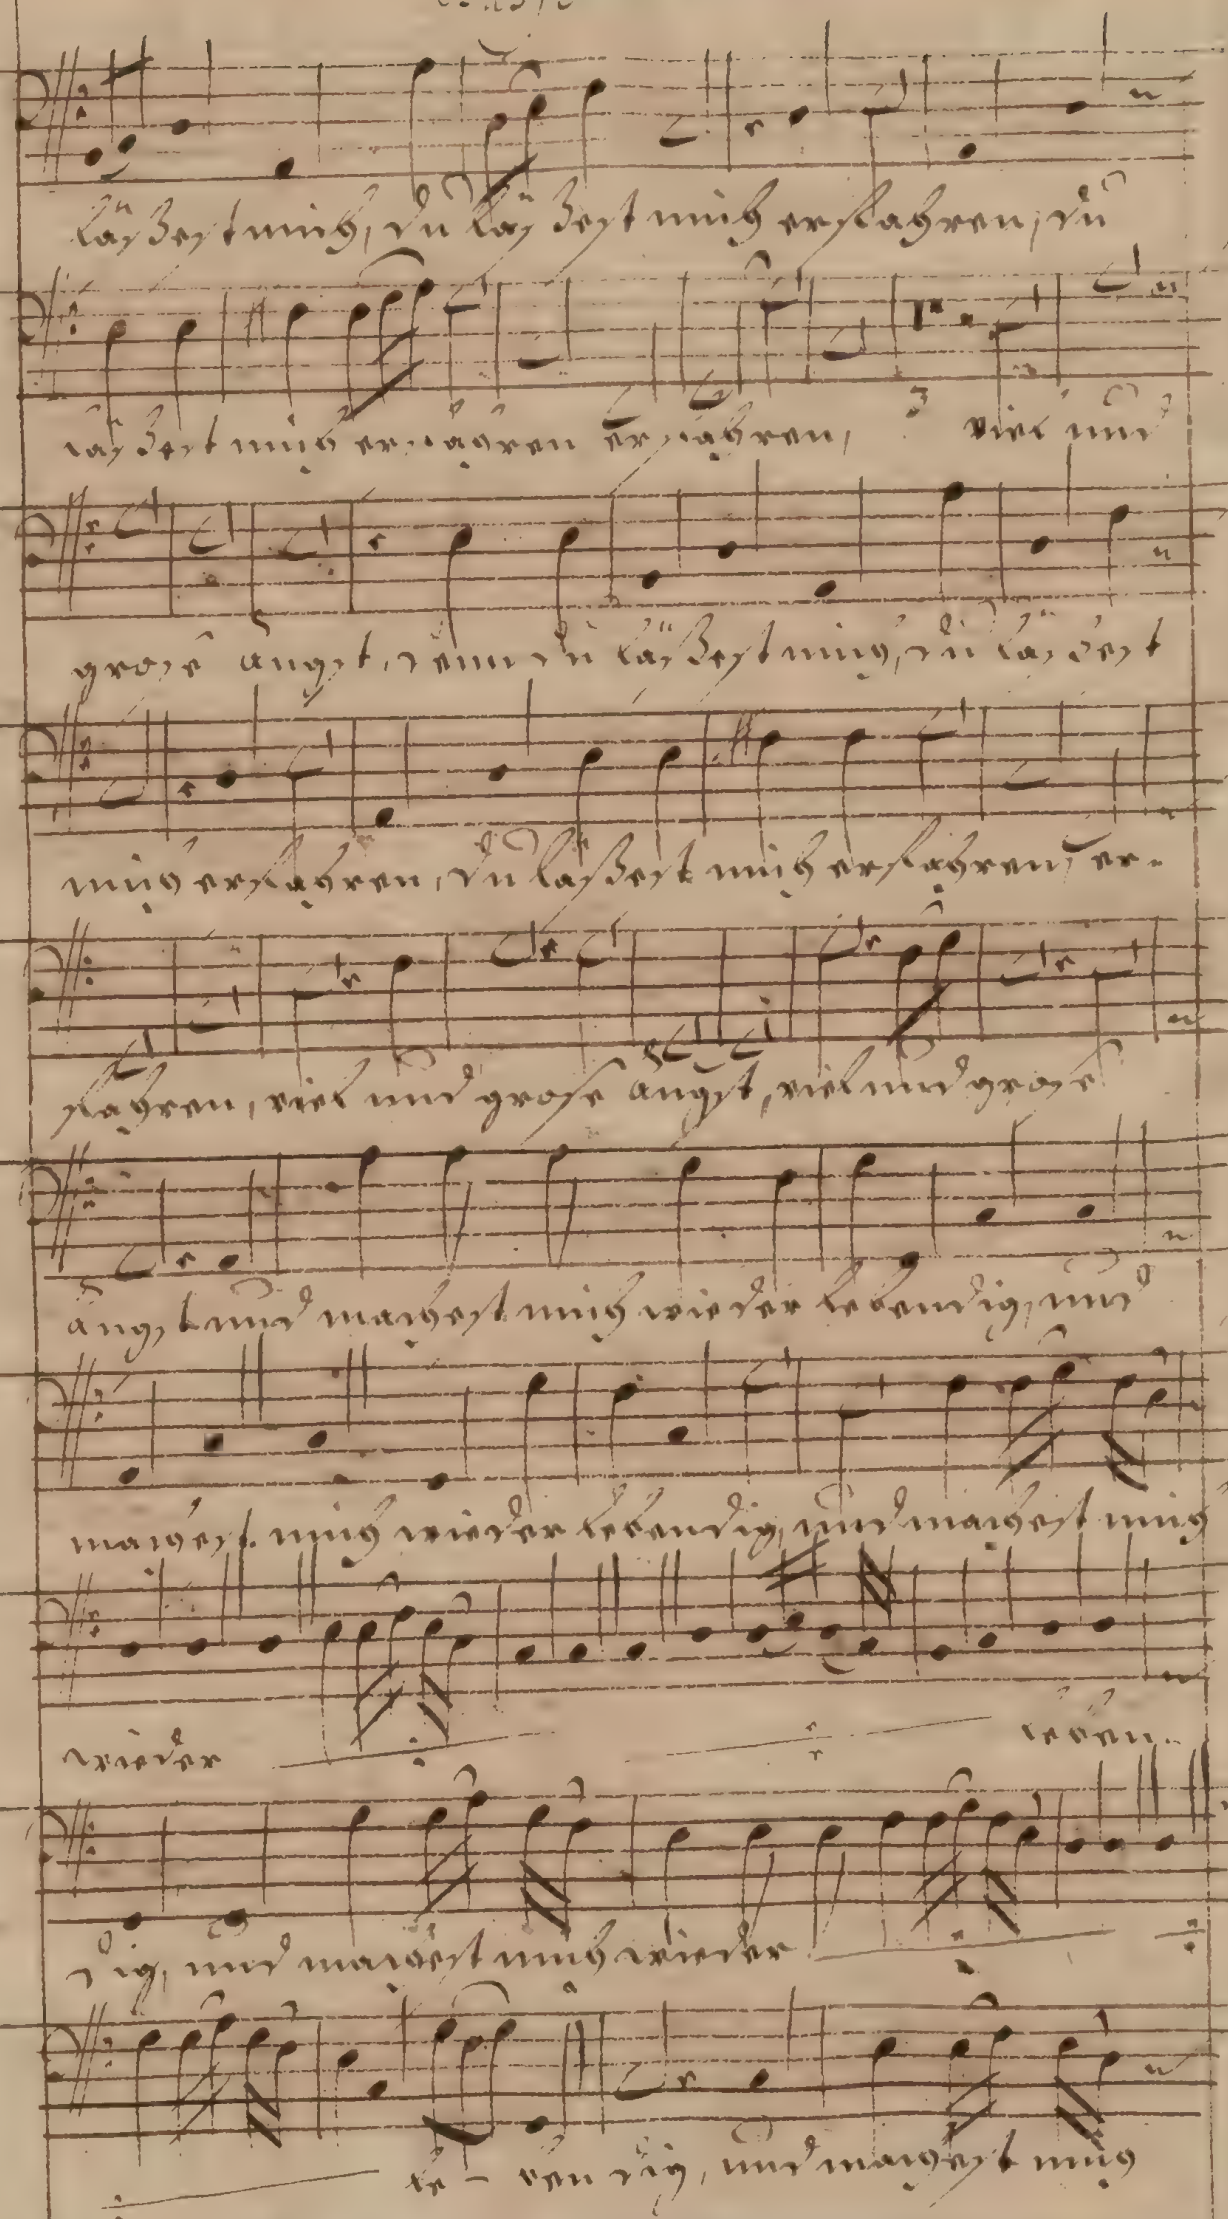 läßest mich, du läßest mich erfahren, du
läßest mich erfahren erfahren, 3 viel und
grose Angst, denn du läßest mich, du läßest
mich erfahren, du läßest mich erfahren, er-
fahren, viel und grose Angst, viel und grose
Angst und machest mich wieder lebendig, und
machest mich wieder lebendig, und machest mich
wieder leben-
dig, und machest mich wieder
le- ben dig, und machest mich